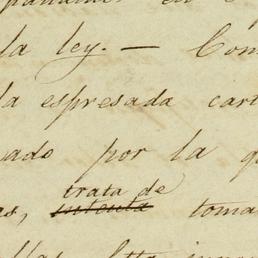 la ley. — Com
la espresada cart
ado por la q
trata de
as, intenta toma